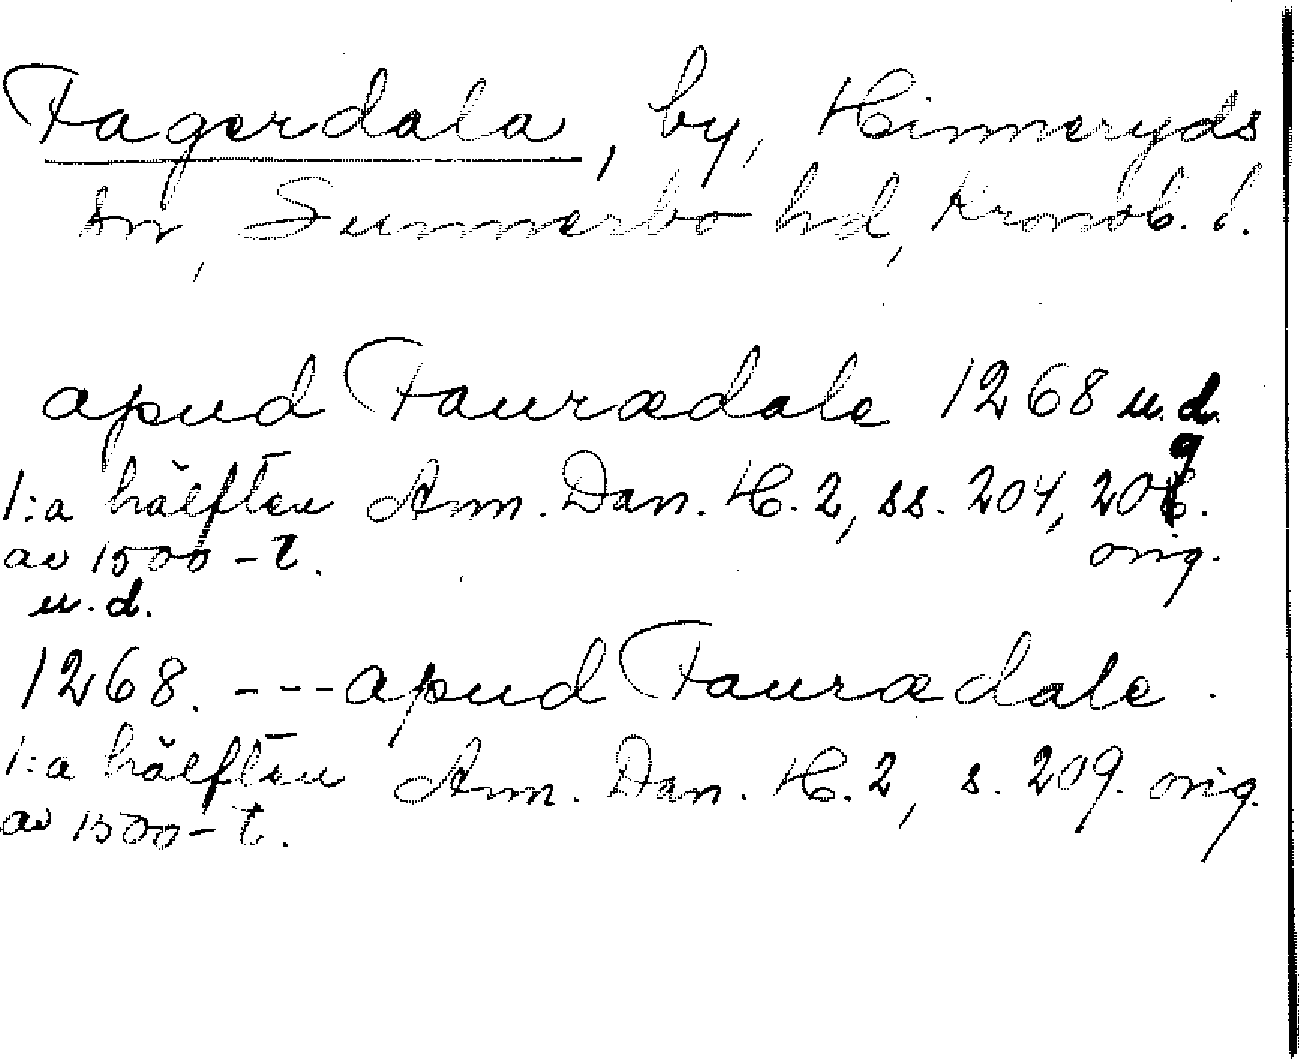 Fagerdala, by, Hinneryds
sn, Sunnerbo hd, Kronob. l.
apud Fauradale 1268 u.d.
1:a hälften Ann. Dan. H. 2, ss. 204, 209.
av 1500-t. orig.
u.d.
1268. ---apud Fauradale.
1:a hälften Ann. Dan. H. 2, s. 209. orig.
av 1500-t.